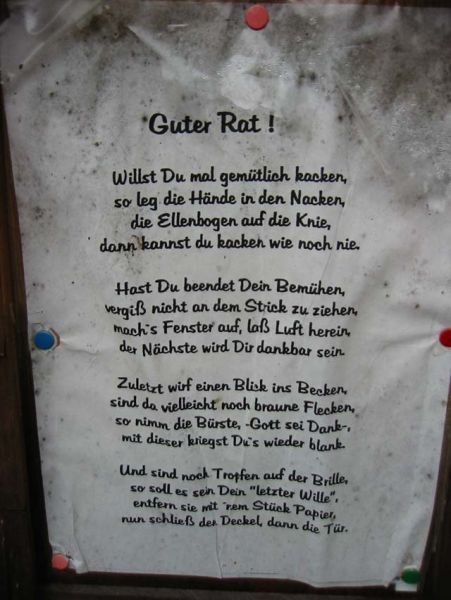 Guter Rat !
Willst Du mal gemütlich kacken,
so leg die Hände in den Nacken,
die Ellenbogen auf die Knie,
dann kannst du kacken wie noch nie.
Hast Du beendet Dein Bemühen,
vergiß nicht an dem Strick zu ziehen,
mach`s Fenster auf, laß Luft herein,
der Nächste wird Dir dankbar sein.
Zuletzt wirf einen Blick ins Becken,
sind da vielleicht noch braune Flecken,
so nimm die Bürste, -Gott sei Dank-,
mit dieser kriegst Du`s wieder blank.
Und sind noch Tropfen auf der Brille,
so soll es sein Dein "letzter Wille",
entfern sie mit `rem Stück Papier,
nun schließ den Deckel, dann die Tür.